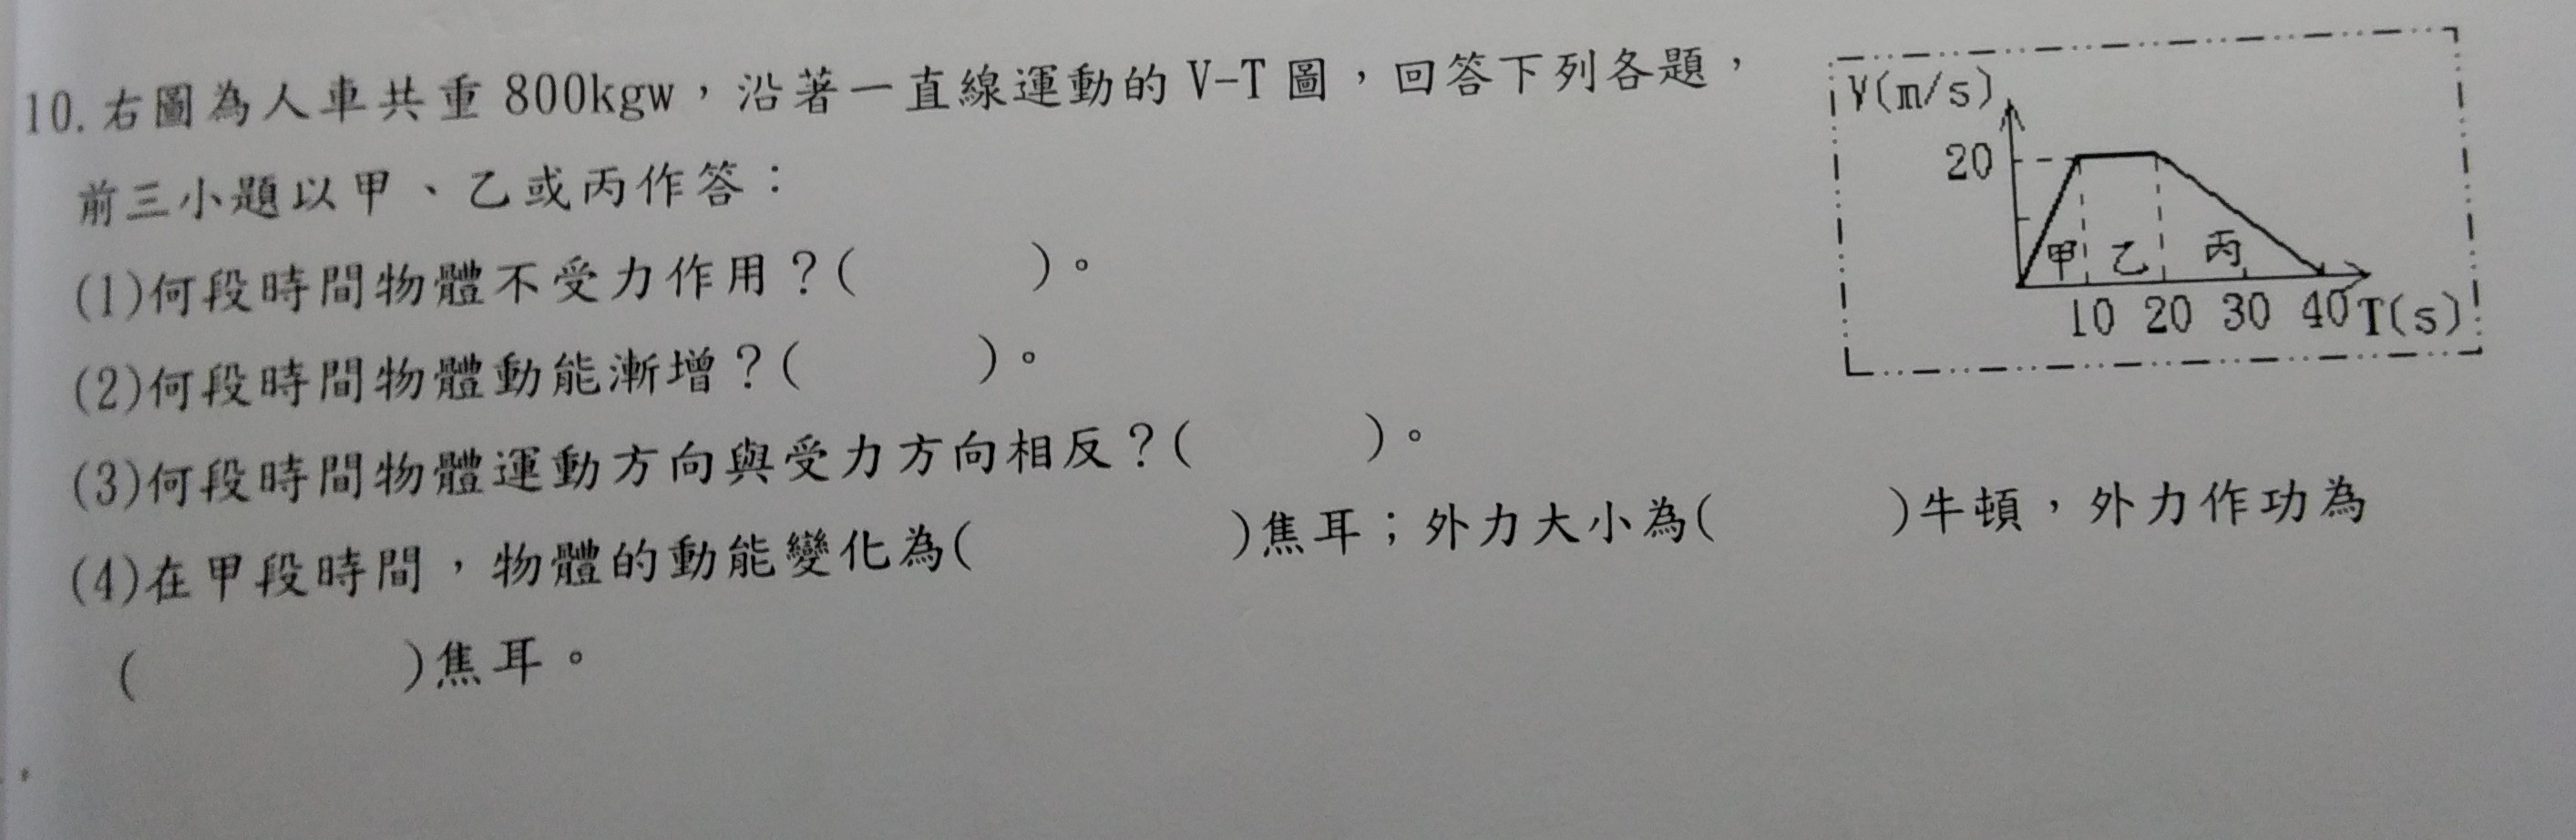 10.右圖為人車共重 800kgw，沿著一直線運動的 V-T 圖，回答下列各題，
前三小題以甲、乙或丙作答：
(1)何段時間物體不受力作用？(　　　)。
(2)何段時間物體動能漸增？(　　　)。
(3)何段時間物體運動方向與受力方向相反？(　　　)。
(4)在甲段時間，物體的動能變化為(　　　　)焦耳；外力大小為(　　　)牛頓，外力作功為
(　　　　)焦耳。
V(m/s)
20
甲 乙 丙
10 20 30 40 T(s)